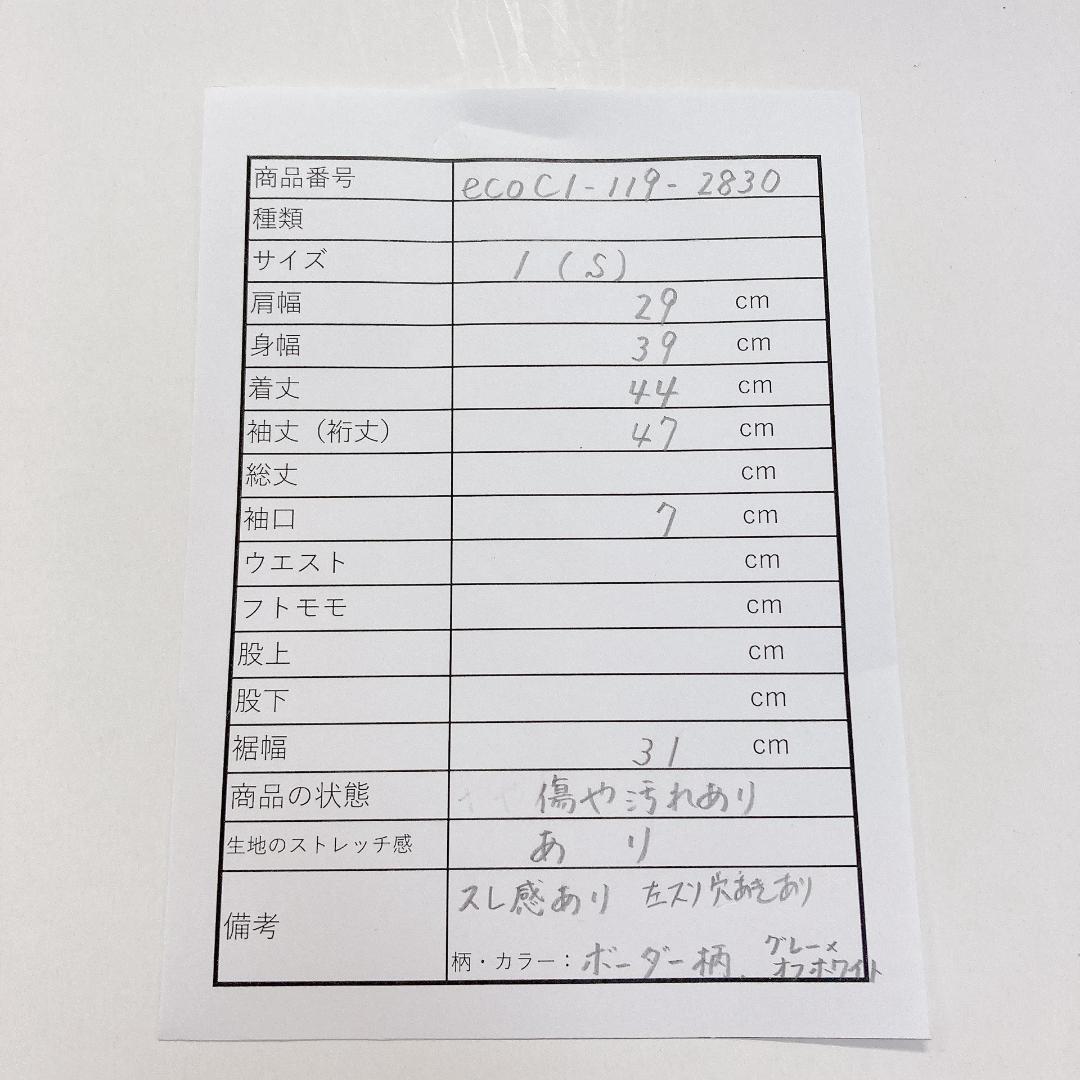 商品番号 ecoC1-119-2830
種類
サイズ 1 (S)
肩幅 29 cm
身幅 39 cm
着丈 44 cm
袖丈（裄丈） 47 cm
総丈 cm
袖口 7 cm
ウエスト cm
フトモモ cm
股上 cm
股下 cm
裾幅 31 cm
商品の状態 傷や汚れあり
生地のストレッチ感 あり
備考
スレ感あり 左スソ穴あきあり
柄・カラー： ボーダー柄、 グレー×
オフホワイト